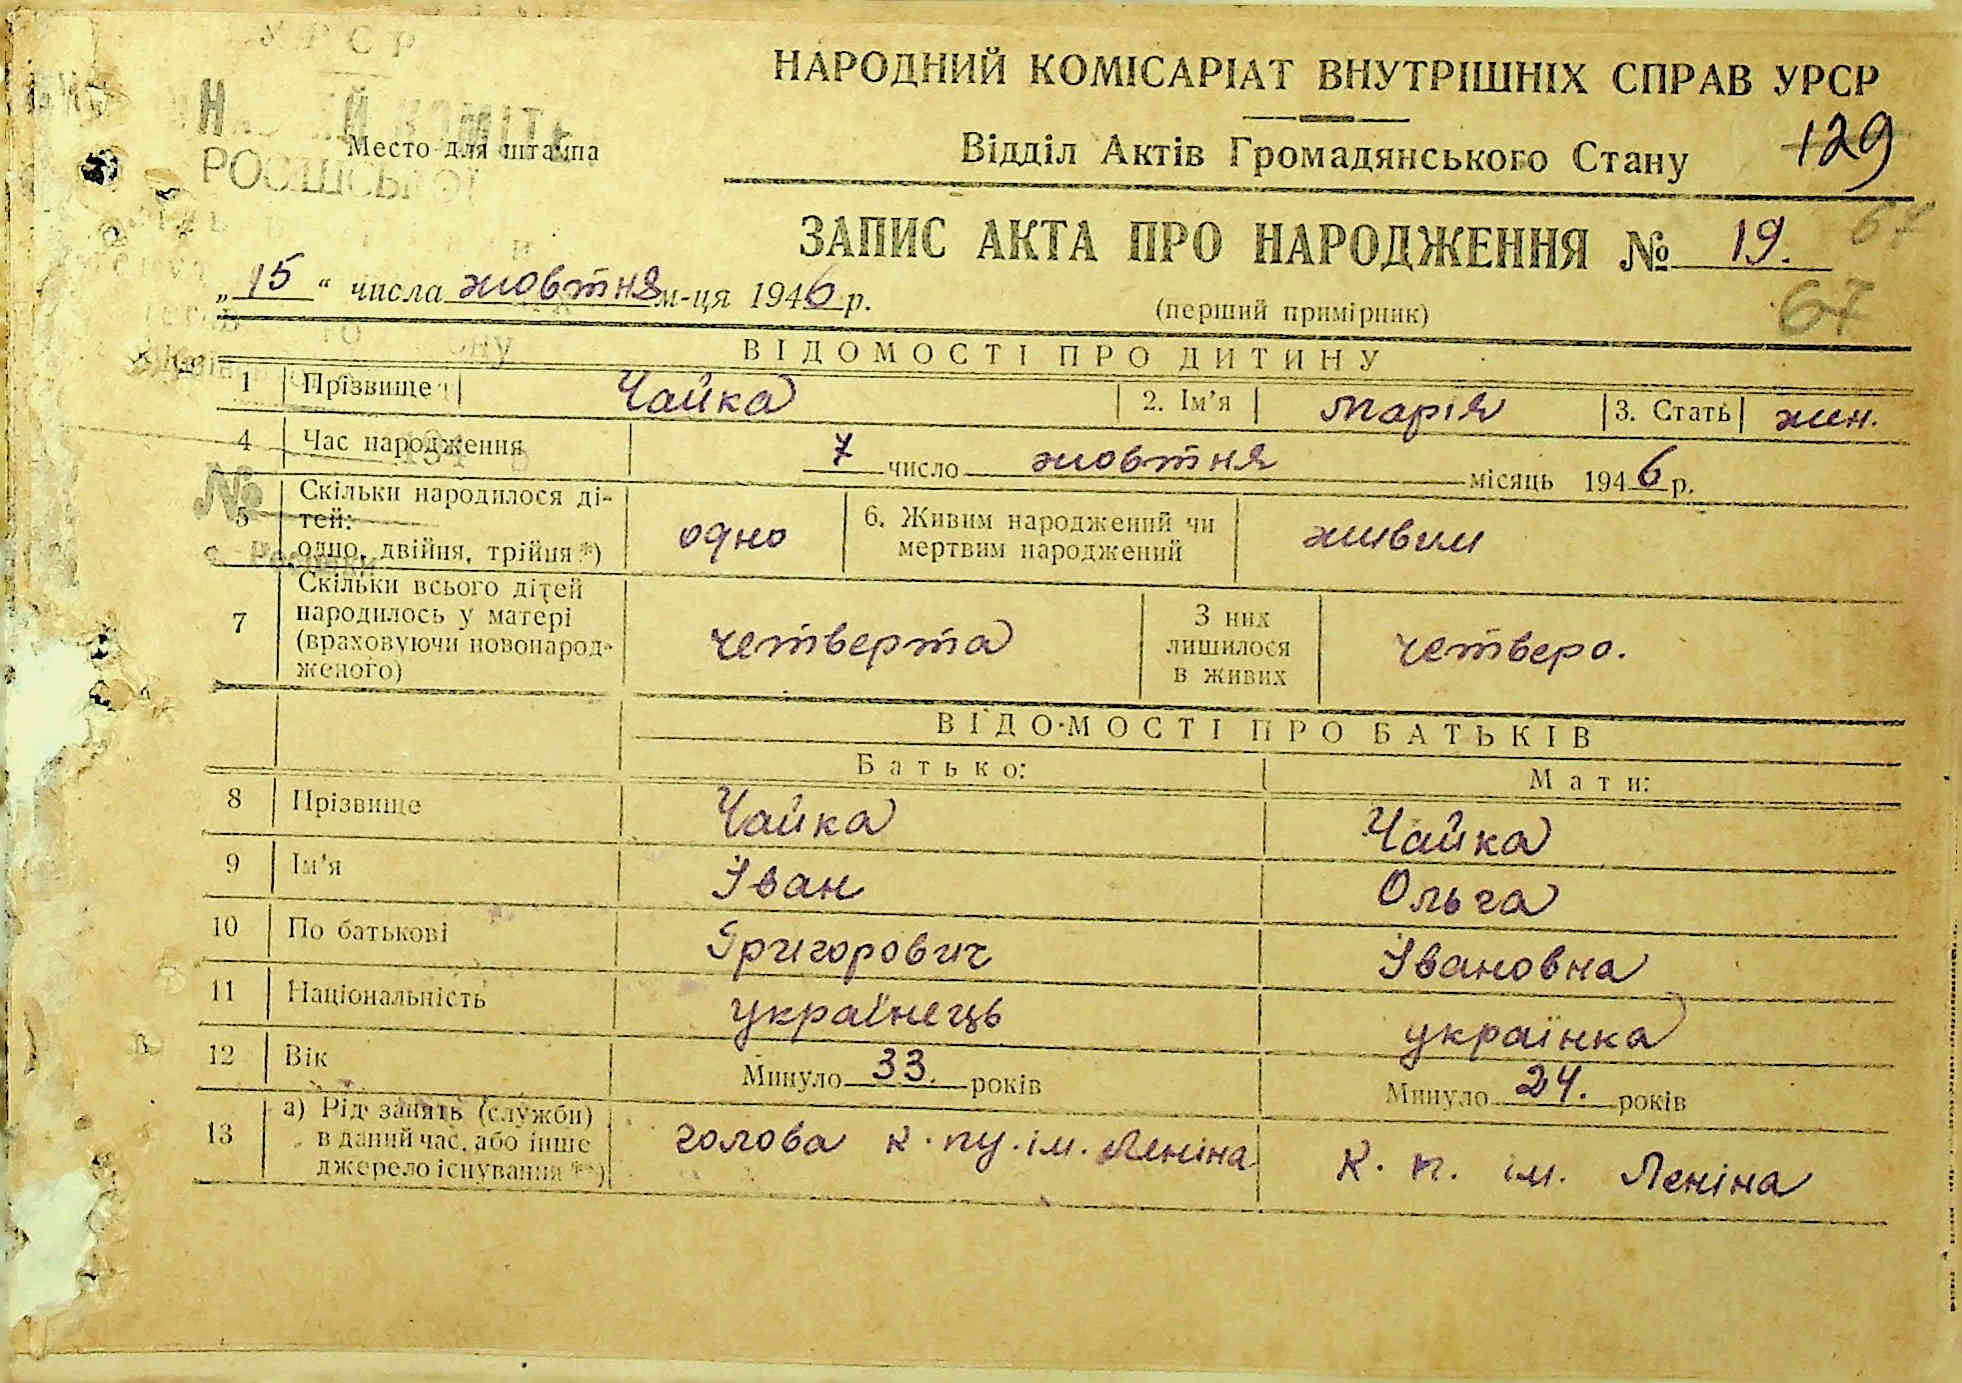 УРСР
НАРОДНИЙ КОМІСАРІАТ ВНУТРІШНІХ СПРАВ УРСР
Место для штампа
Відділ Актів Громадянського Стану
129
ЗАПИС АКТА ПРО НАРОДЖЕННЯ № 19.
67
„15“ числа жовтня м-ця 1946 р.
(перший примірник)
67
ВІДОМОСТІ ПРО ДИТИНУ
1 Прізвище Чайка 2. Ім'я Марія 3. Стать жин.
4 Час народження 7 число жовтня місяць 1946 р.
№
5 Скільки народилося ді-
тей:
одно, двійня, трійня *) одно
6. Живим народжений чи
мертвим народжений живим
7 Скільки всього дітей
народилось у матері
(враховуючи новонарод-
женого) четверта
З них
лишилося
в живих четверо.
ВІДОМОСТІ ПРО БАТЬКІВ
Батько: Мати:
8 Прізвище Чайка Чайка
9 Ім'я Іван Ольга
10 По батькові Григорович Івановна
11 Національність українець українка
12 Вік Минуло 33. років Минуло 24. років
13 а) Рід занять (служби)
в даний час, або інше
джерело існування **)
голова к. пу. ім. Леніна К. п. ім. Леніна